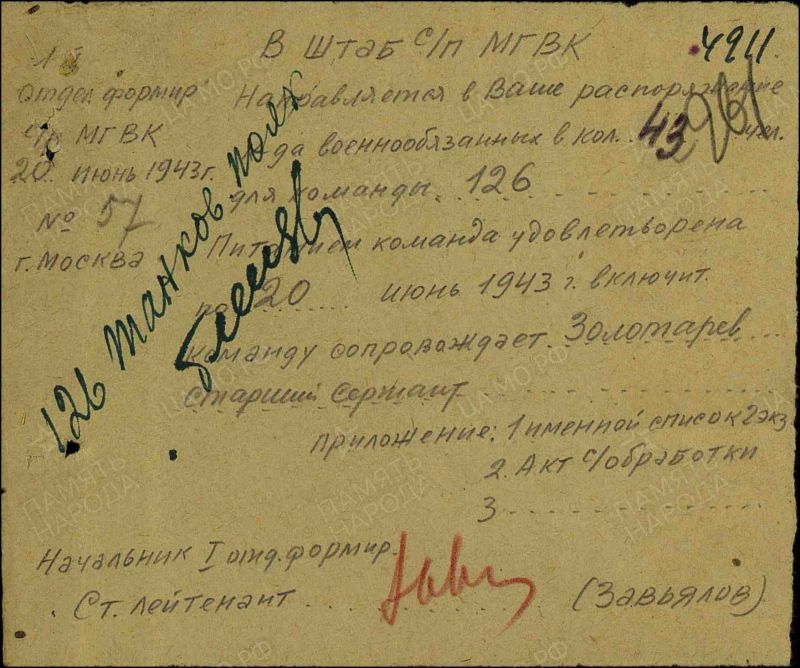 В штаб с/п МГВК
4911.
Отдел формир
с/п МГВК
20 июнь 1943г.
№ 57
г. Москва
Направляется в Ваше распоряжение
да военнообязанных в кол. 43 чел.
для команды 126
Питанием команда удовлетворена
по 20 июнь 1943 г. включит.
команду сопровождает Золотарев
старший сержант
приложение: 1 именной список 2 экз
2. Акт с/обработки
3
Начальник I отд. формир.
Ст. лейтенант (Завьялов)
126 танков полк
ПАМЯТЬ НАРОДА
ЦАМО РФ